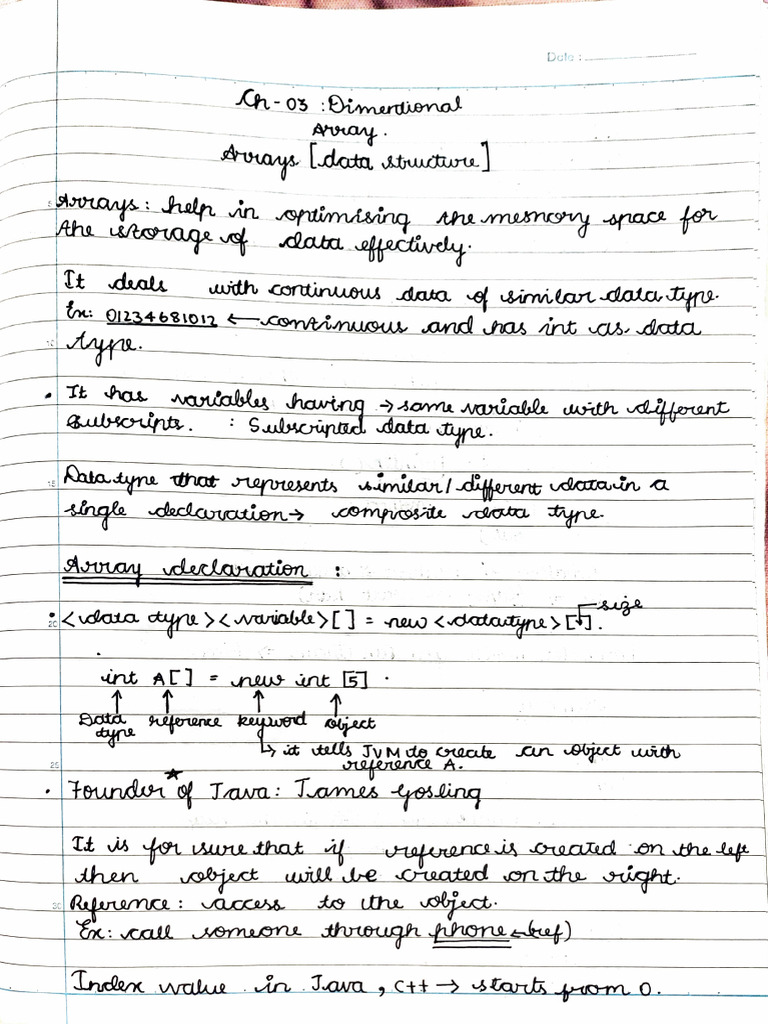 Date :
Ch - 03 : Dimentional
Array.
Arrays [data structure]
Arrays: help in optimising the memory space for
the storage of data effectively.
It deals with continuous data of similar data type.
Ex: 01234681012 ← continuous and has int as data
10 type.
• It has variables having → same variable with different
subscripts. : Subscripted data type.
15 Data type that represents similar/different data in a
single declaration → composite data type.
Array declaration :
size
20 • <data type><variable>[ ] = new <datatype>[ ].
int A[ ] = new int [5] .
↑ ↑ ↑ ↑
Data reference keyword object
type
↳ it tells JVM to create an object with
25 reference A.
• Founder of Java: James Gosling
It is for sure that if reference is created on the left
then object will be created on the right.
30 Reference: access to the object.
Ex: call someone through phone ← (ref)
Index value in Java, C++ → starts from 0.